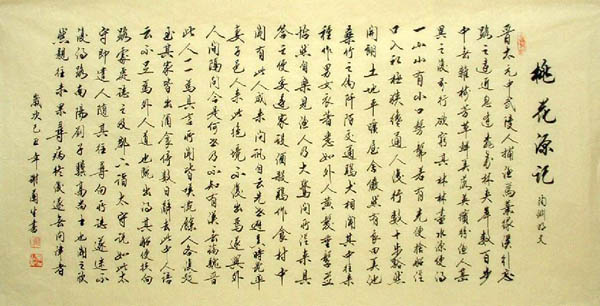 桃花源記
陶淵明文
晉太元中武陵人捕魚為業緣溪行忘
路之遠近忽逢桃花林夾岸數百步
中無雜樹芳草鮮美落英繽紛漁人甚
異之復前行欲窮其林林盡水源便得
一山山有小口髣髴若有光便捨船從
口入初極狹纔通人復行數十步豁然
開朗土地平曠屋舍儼然有良田美池
桑竹之屬阡陌交通雞犬相聞其中往來
種作男女衣著悉如外人黃髮垂髫並
怡然自樂見漁人乃大驚問所從來具
答之便要還家設酒殺雞作食村中
聞有此人咸來問訊自云先世避秦時亂率
妻子邑人來此絕境不復出焉遂與外
人間隔問今是何世乃不知有漢無論魏晉
此人一一為具言所聞皆嘆惋餘人各復延
至其家皆出酒食停數日辭去此中人語
云不足為外人道也既出得其船便扶向
路處處誌之及郡下詣太守說如此太
守即遣人隨其往尋向所誌遂迷不
復得路南陽劉子驥高尚士也聞之欣
然規往未果尋病終後遂無問津者
歲次己丑年